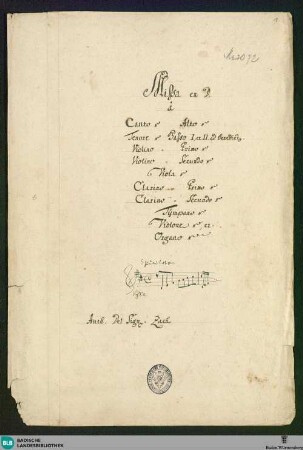 Missa ex D
á
Canto e Alto e
Tenore e Basso I et II
Violino Primo e
Violino Secundo e
Viola e
Clarino Primo e
Clarino Secundo e
Tympano e
Violone e
Organo e
Auth. Del Sigr. Zach
BLB BADISCHE LANDESBIBLIOTHEK
Baden-Württemberg